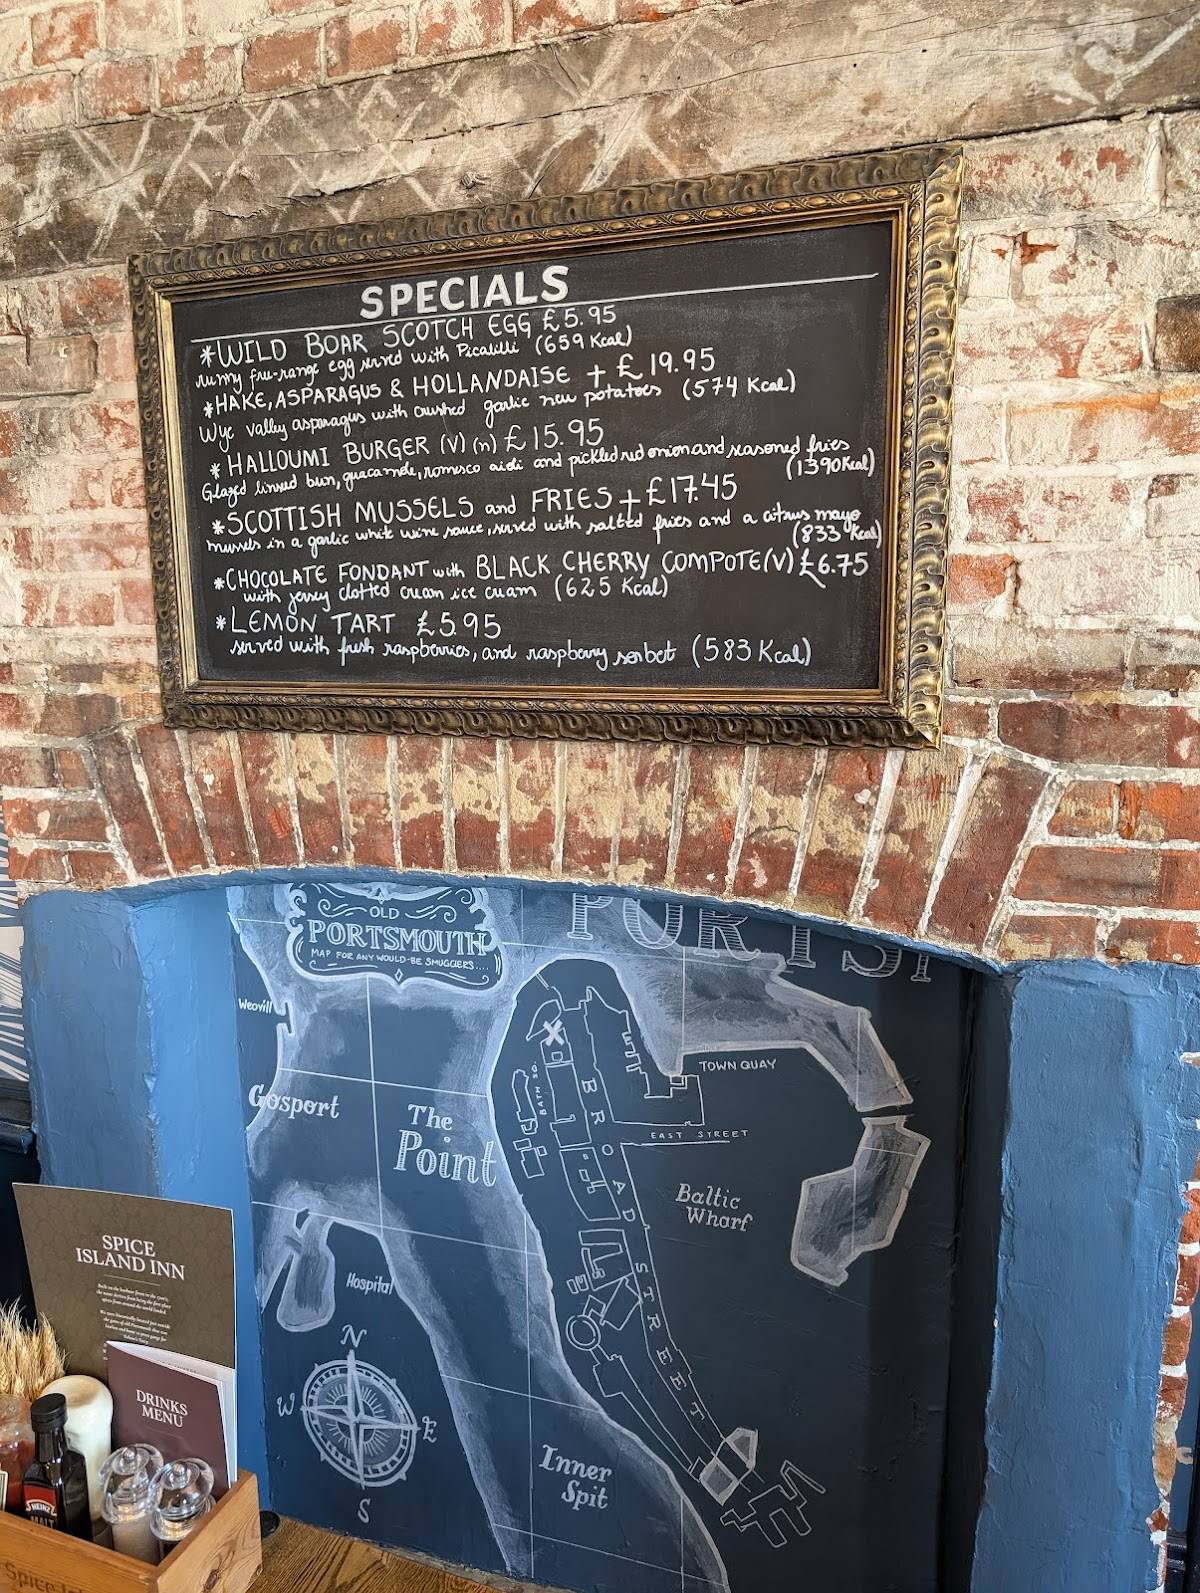 SPECIALS
*WILD BOAR SCOTCH EGG £5.95
runny free-range egg served with Picalilli (659 Kcal)
*HAKE, ASPARAGUS & HOLLANDAISE + £19.95
Wye valley asparagus with crushed garlic new potatoes (574 Kcal)
*HALLOUMI BURGER (V) (n) £15.95
Glazed linseed bun, guacamole, romesco aioli and pickled red onion and seasoned fries
(1390 Kcal)
*SCOTTISH MUSSELS and FRIES + £17.45
mussels in a garlic white wine sauce, served with salted fries and a citrus mayo
(833 Kcal)
*CHOCOLATE FONDANT with BLACK CHERRY COMPOTE (V) £6.75
with jersey clotted cream ice cream (625 Kcal)
*LEMON TART £5.95
served with fresh raspberries, and raspberry sorbet (583 Kcal)
OLD
PORTSMOUTH
MAP FOR ANY WOULD-BE SMUGGLERS....
PORTS
Weovill
TOWN QUAY
BATH SQ.
Gosport
The
Point
EAST STREET
BROAD STREET
Baltic
Wharf
Hospital
N
W
E
S
Inner
Spit
SPICE
ISLAND INN
DRINKS
MENU
HEINZ
MALT
Spice